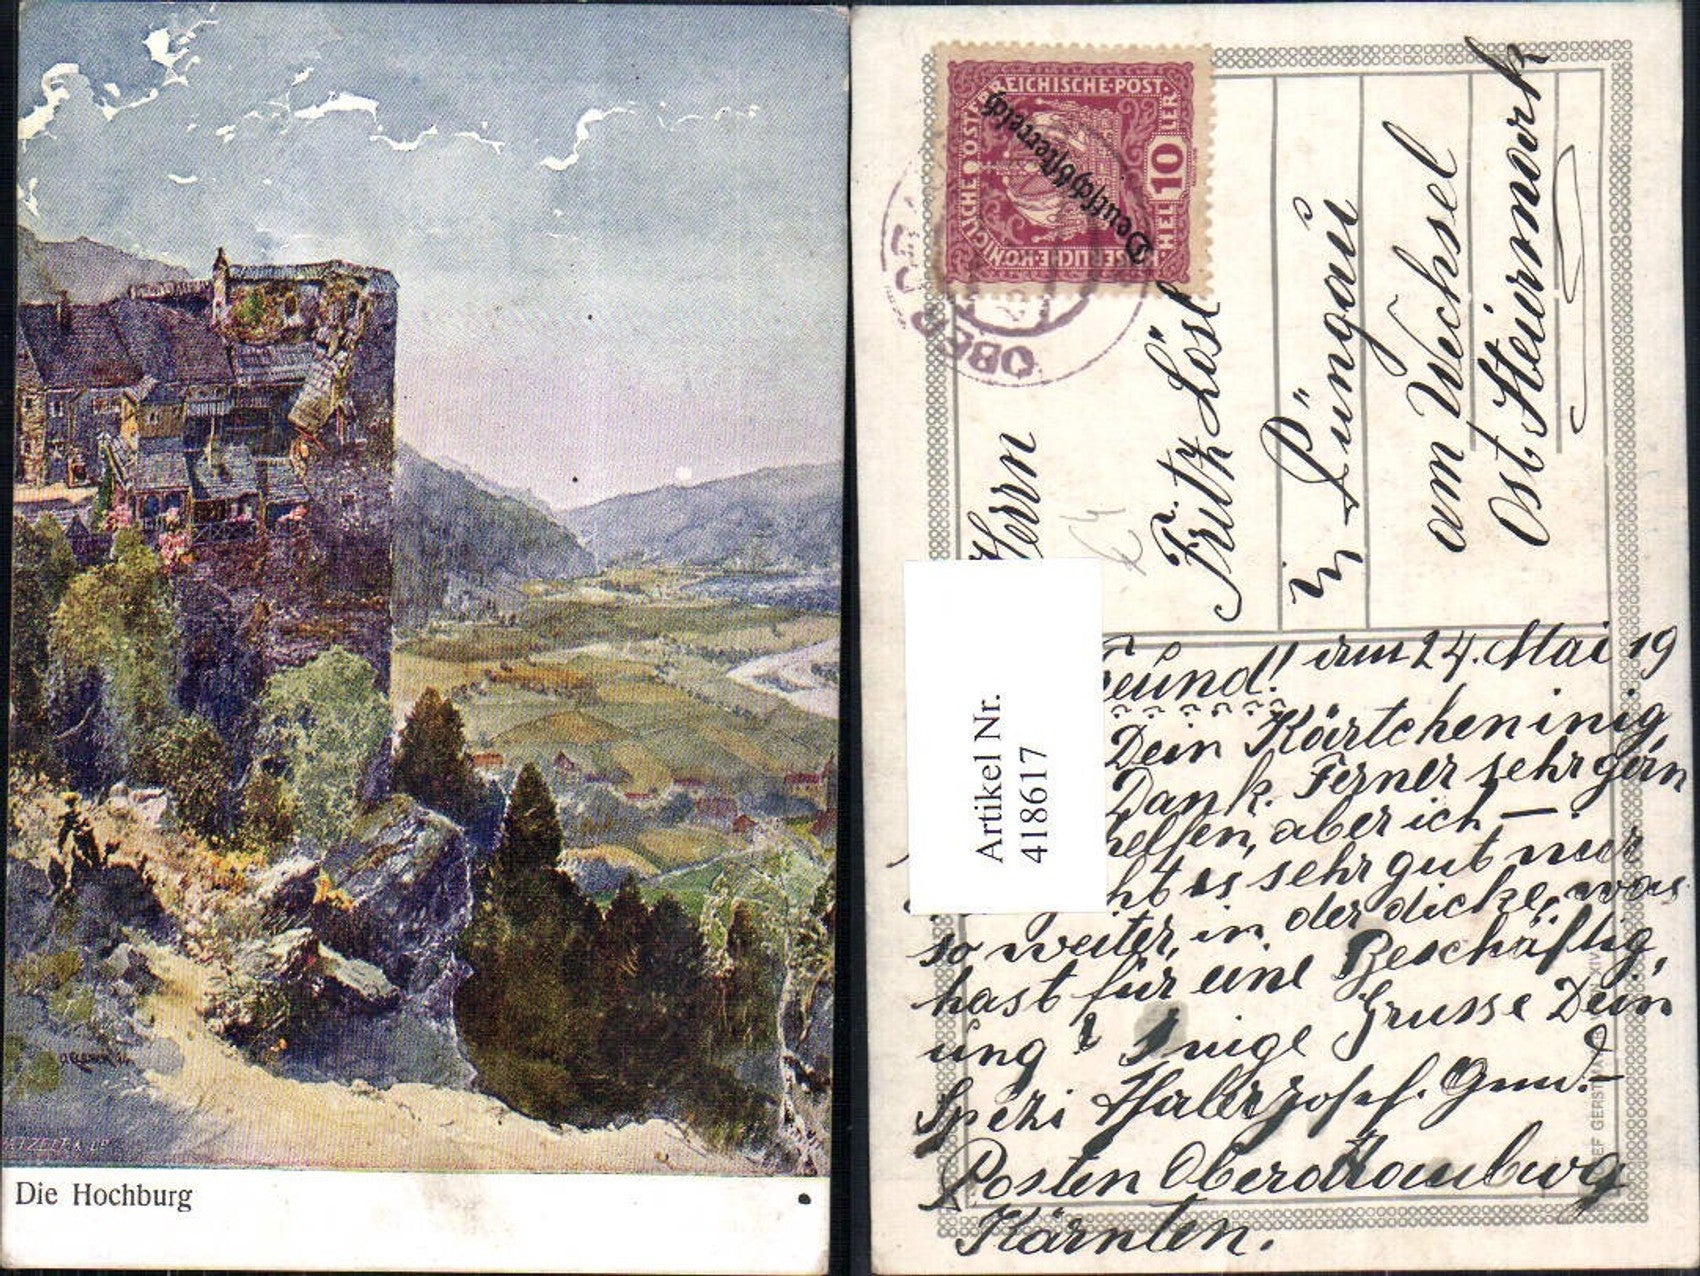 Die Hochburg
KAISERLICHE KÖNIGLICHE ÖSTERREICHISCHE POST
10
HELLER
Deutschösterreich
OBER
Herrn
Fritz Lösl
in Püngau
am Wechsel
Ost Steiermark
Artikel Nr.
418617
eund! am 24. Mai 19
Dein Kärtchen inig
Dank. Ferner sehr gern
helfen, aber ich —
ht es sehr gut nur
so weiter, in der dicke, was
hast für eine Beschäftig,
ung? Inige Grusse Dein
Spezi Thaler Josef. Gend.-
Posten Oberdrauburg
Kärnten.